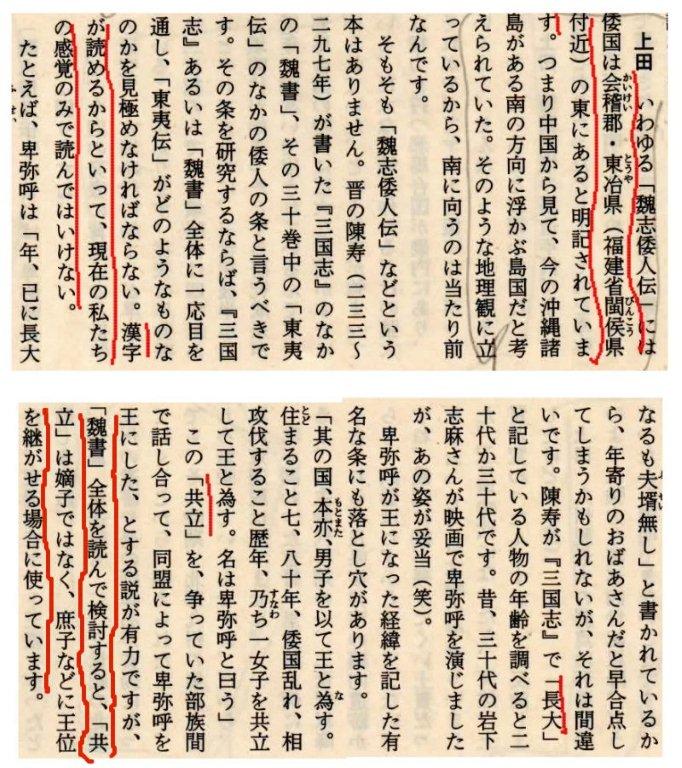 上田　いわゆる「魏志倭人伝」には
倭国は会稽郡・東冶県（福建省閩侯県
かいけい　とうや　びんこう
付近）の東にあると明記されていま
す。つまり中国から見て、今の沖縄諸
島がある南の方向に浮かぶ島国だと考
えられていた。そのような地理観に立
っているから、南に向うのは当たり前
なんです。
そもそも「魏志倭人伝」などという
本はありません。晋の陳寿（二三三〜
二九七年）が書いた『三国志』のなか
の「魏書」、その三十巻中の「東夷
伝」のなかの倭人の条と言うべきで
す。その条を研究するならば、『三国
志』あるいは「魏書」全体に一応目を
通し、「東夷伝」がどのようなものな
のかを見極めなければならない。漢字
が読めるからといって、現在の私たち
の感覚のみで読んではいけない。
たとえば、卑弥呼は「年、已に長大
なるも夫壻無し」と書かれているか
ら、年寄りのおばあさんだと早合点し
てしまうかもしれないが、それは間違
いです。陳寿が『三国志』で「長大」
と記している人物の年齢を調べると二
十代か三十代です。昔、三十代の岩下
志麻さんが映画で卑弥呼を演じました
が、あの姿が妥当（笑）。
卑弥呼が王になった経緯を記した有
名な条にも落とし穴があります。
「其の国、本亦、男子を以て王と為す。
もとまた　な
住まること七、八十年、倭国乱れ、相
とど
攻伐すること歴年、乃ち一女子を共立
すなわ
して王と為す。名は卑弥呼と曰う」
この「共立」を、争っていた部族間
で話し合って、同盟によって卑弥呼を
王にした、とする説が有力ですが、
「魏書」全体を読んで検討すると、「共
立」は嫡子ではなく、庶子などに王位
を継がせる場合に使っています。